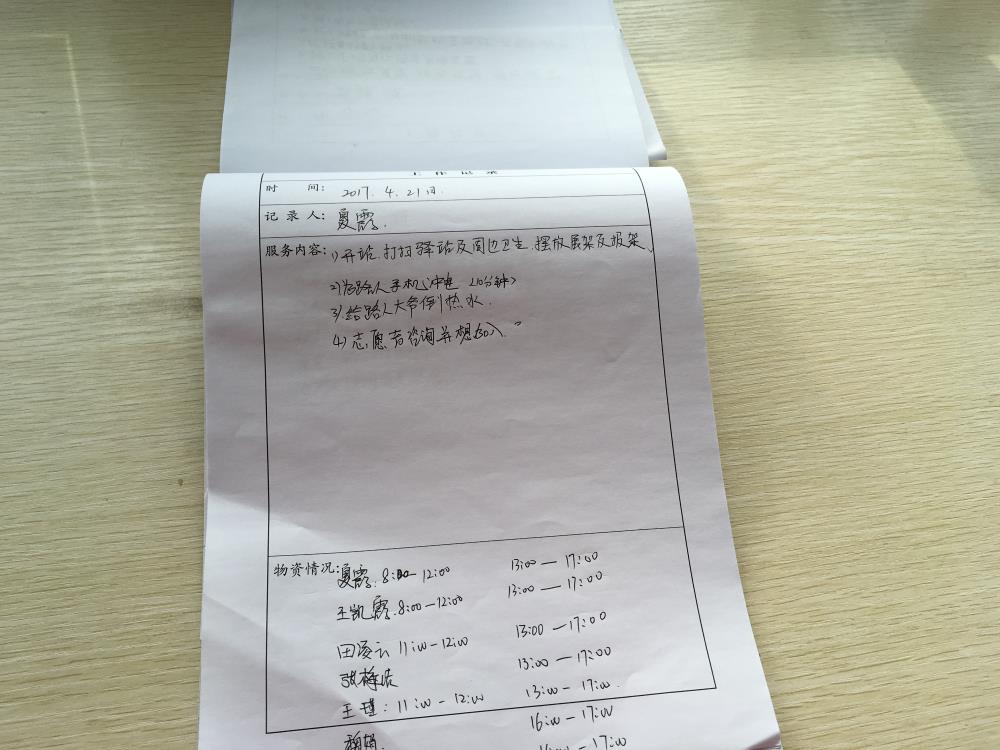 工作记录
时 间: 2017. 4. 21日.
记录人: 夏露.
服务内容: 1)开站.打扫驿站及周边卫生.摆放展架及报架、
2)为路人手机冲电 (10分钟)
3)给路人大爷倒热水.
4)志愿者咨询并想加入。
物资情况: 夏露: 8:00-12:00 13:00—17:00
王凯露.8:00-12:00 13:00—17:00
田凌云 11:00-12:00 13:00—17:00
13:00—17:00
王瑾: 11:00-12:00 13:00-17:00.
16:00-17:00
16:00-17:00